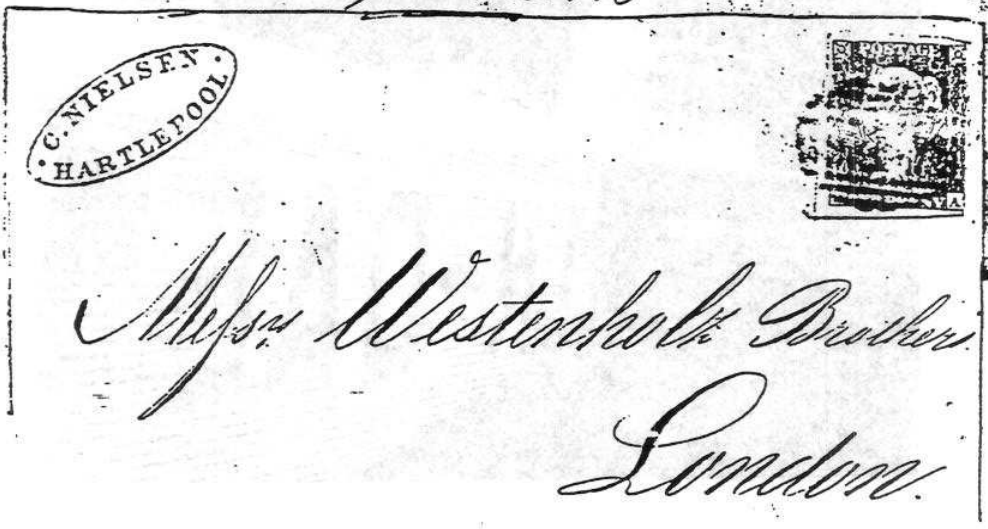 C. NIELSEN
HARTLEPOOL
POSTAGE
Messrs. Westenholz Brothers
London.